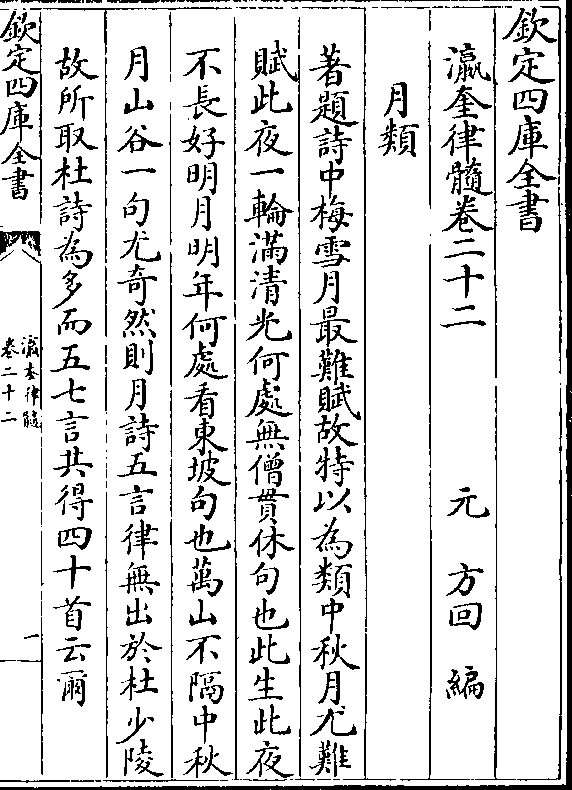 欽定四庫全書
瀛奎律髓卷二十二
元 方回 編
月類
著題詩中梅雪月最難賦故特以為類中秋月尤難
賦此夜一輪滿清光何處無僧貫休句也此生此夜
不長好明月明年何處看東坡句也萬山不隔中秋
月山谷一句尤奇然則月詩五言律無出於杜少陵
故所取杜詩為多而五七言共得四十首云爾
欽定四庫全書
瀛奎律髓
卷二十二
一